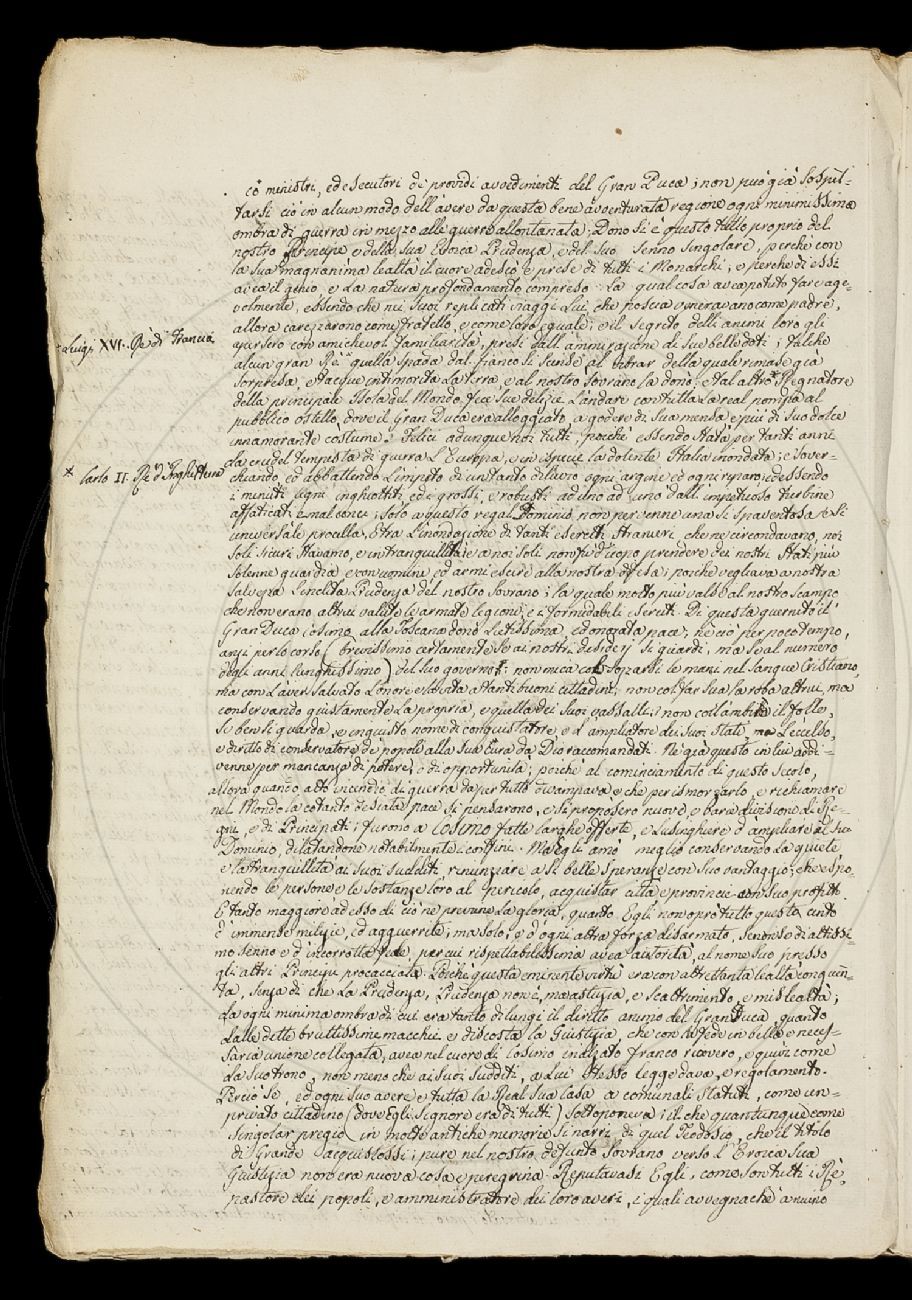 cō ministri, ed esecutori de' providi avvedimenti del Gran Duca; non può già sospit-
tarsi ciò in alcun modo dell'avere da questa bene avventurata regione ogni minimissima
ombra di guerra in mezzo alle guerre allontanata. Dono si è questo tutto proprio del
nostro Principe, e della sua Eroica Prudenza, e del suo Senno singolare, perchè con
la sua magnanima lealtà il cuore adescò, e prese di tutti i Monarchi; e perchè di essi
avea il genio, e la natura profondamente compreso. La qual cosa avea potuto fare age-
volmente, essendo che nei suoi replicati viaggi Lui, che poscia veneravano come padre,
allora carezzarono come fratello, e come loro eguale; e il segreto delli animi loro gli
apersero con amichevol familiarità, presi dall'ammirazione di sue belle doti; talchè
* Luigi XVI. Rè di Francia
alcun gran Rè * quella spada dal fianco si scinse, al vibrar della quale rimase già
sorpresa, e tacque intimorita la terra, e al nostro Sovrano la donò; e tal altro * Regnatore
della principale Isola del Mondo fece sue delizie l'andare con tutta la real pompa al
pubblico ostello, dove il Gran Duca era alloggiato, a godere di sua mensa, e più di suo dolce
innamorante costume. Felici adunque noi tutti, poichè essendo stata per tanti anni
* Carlo II. Rè d'Inghilterra
da crudel tempesta di guerra l'Europa, e in ispecie la dolente Italia inondata; e sover-
chiando, ed abbattendo l'impeto di un tanto diluvio ogni argine, ed ogni riparo; ed essendo
i minuti legni inghiottiti, ed i grossi, e robusti ad uno ad uno dall'impetuoso turbine
affaticati, e mal conci; solo a questo regal Dominio non pervenne una sì spaventosa, e sì
universale procella. E tra l'inondazione di tanti eserciti stranieri, che ne circondavano, noi
soli sicuri stavamo, e in tranquillità; e a noi soli non fu d'uopo prendere dei nostri Stati più
solenne guardia, e con uomini, ed armi escire alla nostra difesa; poichè vegliava a nostra
salvezza l'inclita Prudenza del nostro Sovrano; la quale molto più valse al nostro scampo
che non erano altrui valute le armate legioni, e i formidabili eserciti. Di questa guernito il
Gran Duca Cosimo, alla Toscana donò lietissima, ed onorata pace; nè ciò per poco tempo,
anzi per lo corso (brevissimo certamente se ai nostri desiderj si guardi, ma se al numero
degli anni, lunghissimo) del suo governo: non mica col sozzarsi le mani nel sangue Cristiano,
ma con l'aver salvato l'onore e la vita a tanti buoni cittadini; non col far sua la roba altrui, ma
conservando giustamente la propria, e quella dei suoi vassalli; non coll'ambire il folle,
se ben si guarda, e ingiusto nome di conquistatore, e d'ampliatore dei suoi Stati, ma l'eccelso,
e diritto di conservatore de' popoli alla sua cura da Dio raccomandati. Nè già questo in lui addi-
venne per mancanza di potere, o di opportunità; poichè al cominciamento di questo secolo,
allora quando alto incendio di guerra da per tutto divampava, e che per ismorzarlo, e richiamare
nel Mondo la cotanto desiata pace si pensarono, e si proposero nuove, e varie divisioni di Re-
gni, e di Principati; furono a COSIMO fatte larghe offerte, e lusinghiere d'ampliare il suo
Dominio, dilatandone notabilmente i confini. Ma Egli amò meglio conservando la quiete
e la tranquillità ai suoi sudditi, rinunziare a sì belle speranze con suo vantaggio, che espo-
nendo le persone e le sostanze loro al pericolo, acquistar città e provincie con suo profitto.
E tanto maggiore adesso di ciò ne proviene la gloria, quanto Egli non oprò tutto questo, cinto
d'immense milizie, ed agguerrite; ma solo, e d'ogni altra forza disarmato, se non se di altissi-
mo senno e d'incorrotta fede, per cui rispettabilissima avea autorità, al nome suo presso
gli altri Principi procacciata. Poichè questa eminente virtù era con altrettanta lealtà congiun-
ta, senza di che la Prudenza, Prudenza non è, ma astuzia, e scaltrimento, e mislealtà;
la ogni minima ombra di cui era tanto di lungi il diritto animo del Gran Duca, quanto
dalle dette bruttissime macchie è discosta la Giustizia, che con la fede in bella e neces-
saria unione collegata, avea nel cuore di Cosimo indizato franco ricovero, e quivi come
da suo trono, non meno chè ai suoi sudditi, a Lui stesso legge dava, e regolamento.
Perciò Se, ed ogni suo avere, e tutta la Real sua Casa a comunali Statuti, come un
privato cittadino (dove Egli Signore era di tutti) sottoponeva; il che quantunque come
singolar pregio (in molte antiche memorie si narri di quel Teodosio, che il titolo
di Grande acquistossi; pure nel nostro defunto Sovrano verso l'Eroica sua
Giustizia non era nuova cosa, e peregrina. Reputavasi Egli, come son tutti i Rè,
pastore dei popoli, e amministratore dei loro averi, i quali avvegnachè a niuno